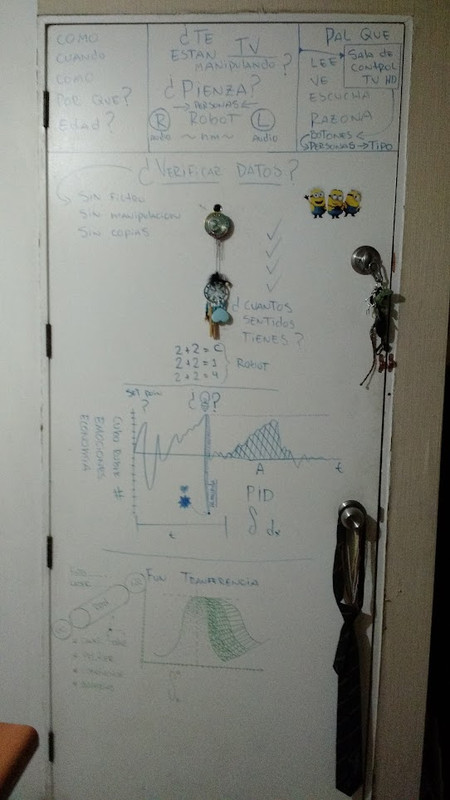 COMO
CUANDO
COMO
POR QUE?
EDAD?
¿TE
ESTAN TV
MANIPULANDO?
¿PIENZA?
→ PERSONAS ←
R ROBOT L
AUDIO ~ nm ~ AUDIO
PAL QUE
LEE
VE
ESCUCHA
RAZONA
BOTONES
PERSONAS → TIPO
Sala de
CONTROL
TV HD
¿VERIFICAR DATOS?
SIN FILTRO
SIN MANIPULACION
SIN COPIAS
¿CUANTOS
SENTIDOS
TIENES?
2+2=C
2+2=3
2+2=4
ROBOT
?
¿ ?
EMOCIONES
ECONOMIA
A
t
PID
∫ dx
t
FUN TRANFERENCIA